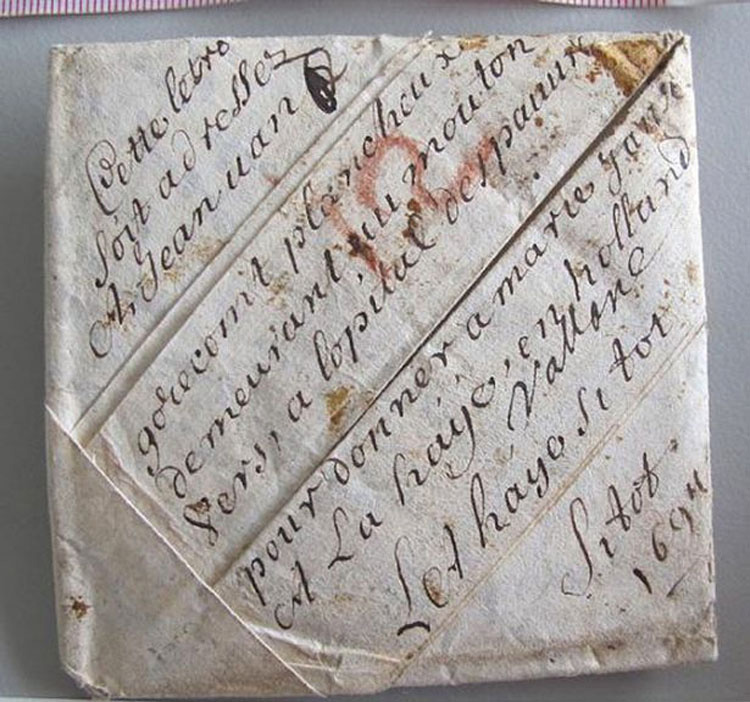 Cette lebre
soit adressez
A Jean uan
gorecomt plancheux
demeurant au mouton
vers, a lopital des pauure
pour donner a marie Jane
A La haye, en holland
Vallone
Let haye sitot
Sitot
1694
12